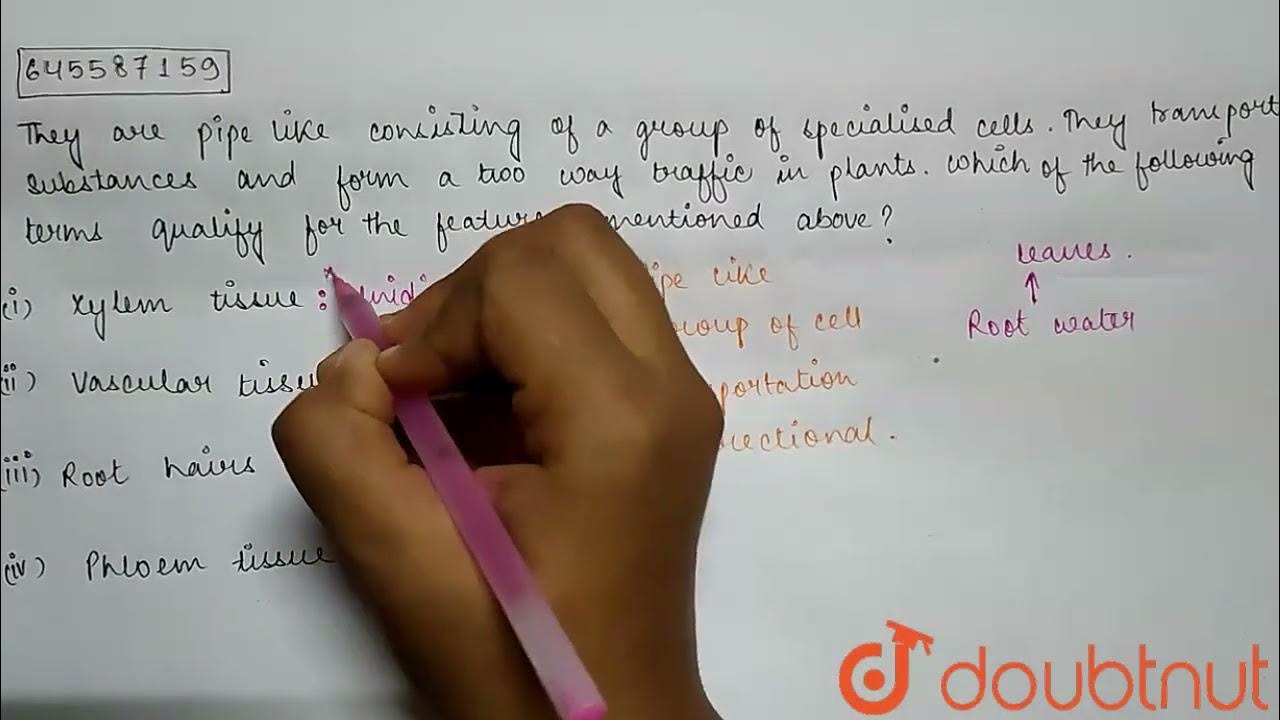 645587159
They are pipe like consisting of a group of specialised cells. They transport
substances and form a two way traffic in plants. Which of the following
terms qualify for the mentioned above?
(i) Xylem tissue : like
(ii) Vascular of cell
(iii) Root hairs
(iv) Phloem tissue
leaves.
↑
Root water
doubtnut